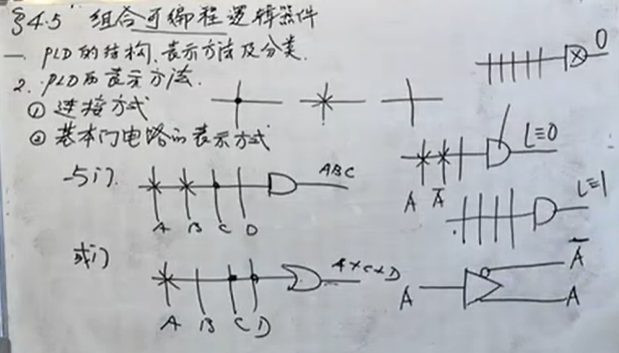 §4.5 组合可编程逻辑器件
一 PLD的结构、表示方法及分类.
2. PLD的表示方法.
① 连接方式
② 基本门电路的表示方式
0
L≡0
A Ā
与门
ABC
A B C D
L≡1
或门
A+C+D
A B C D
A
Ā
A